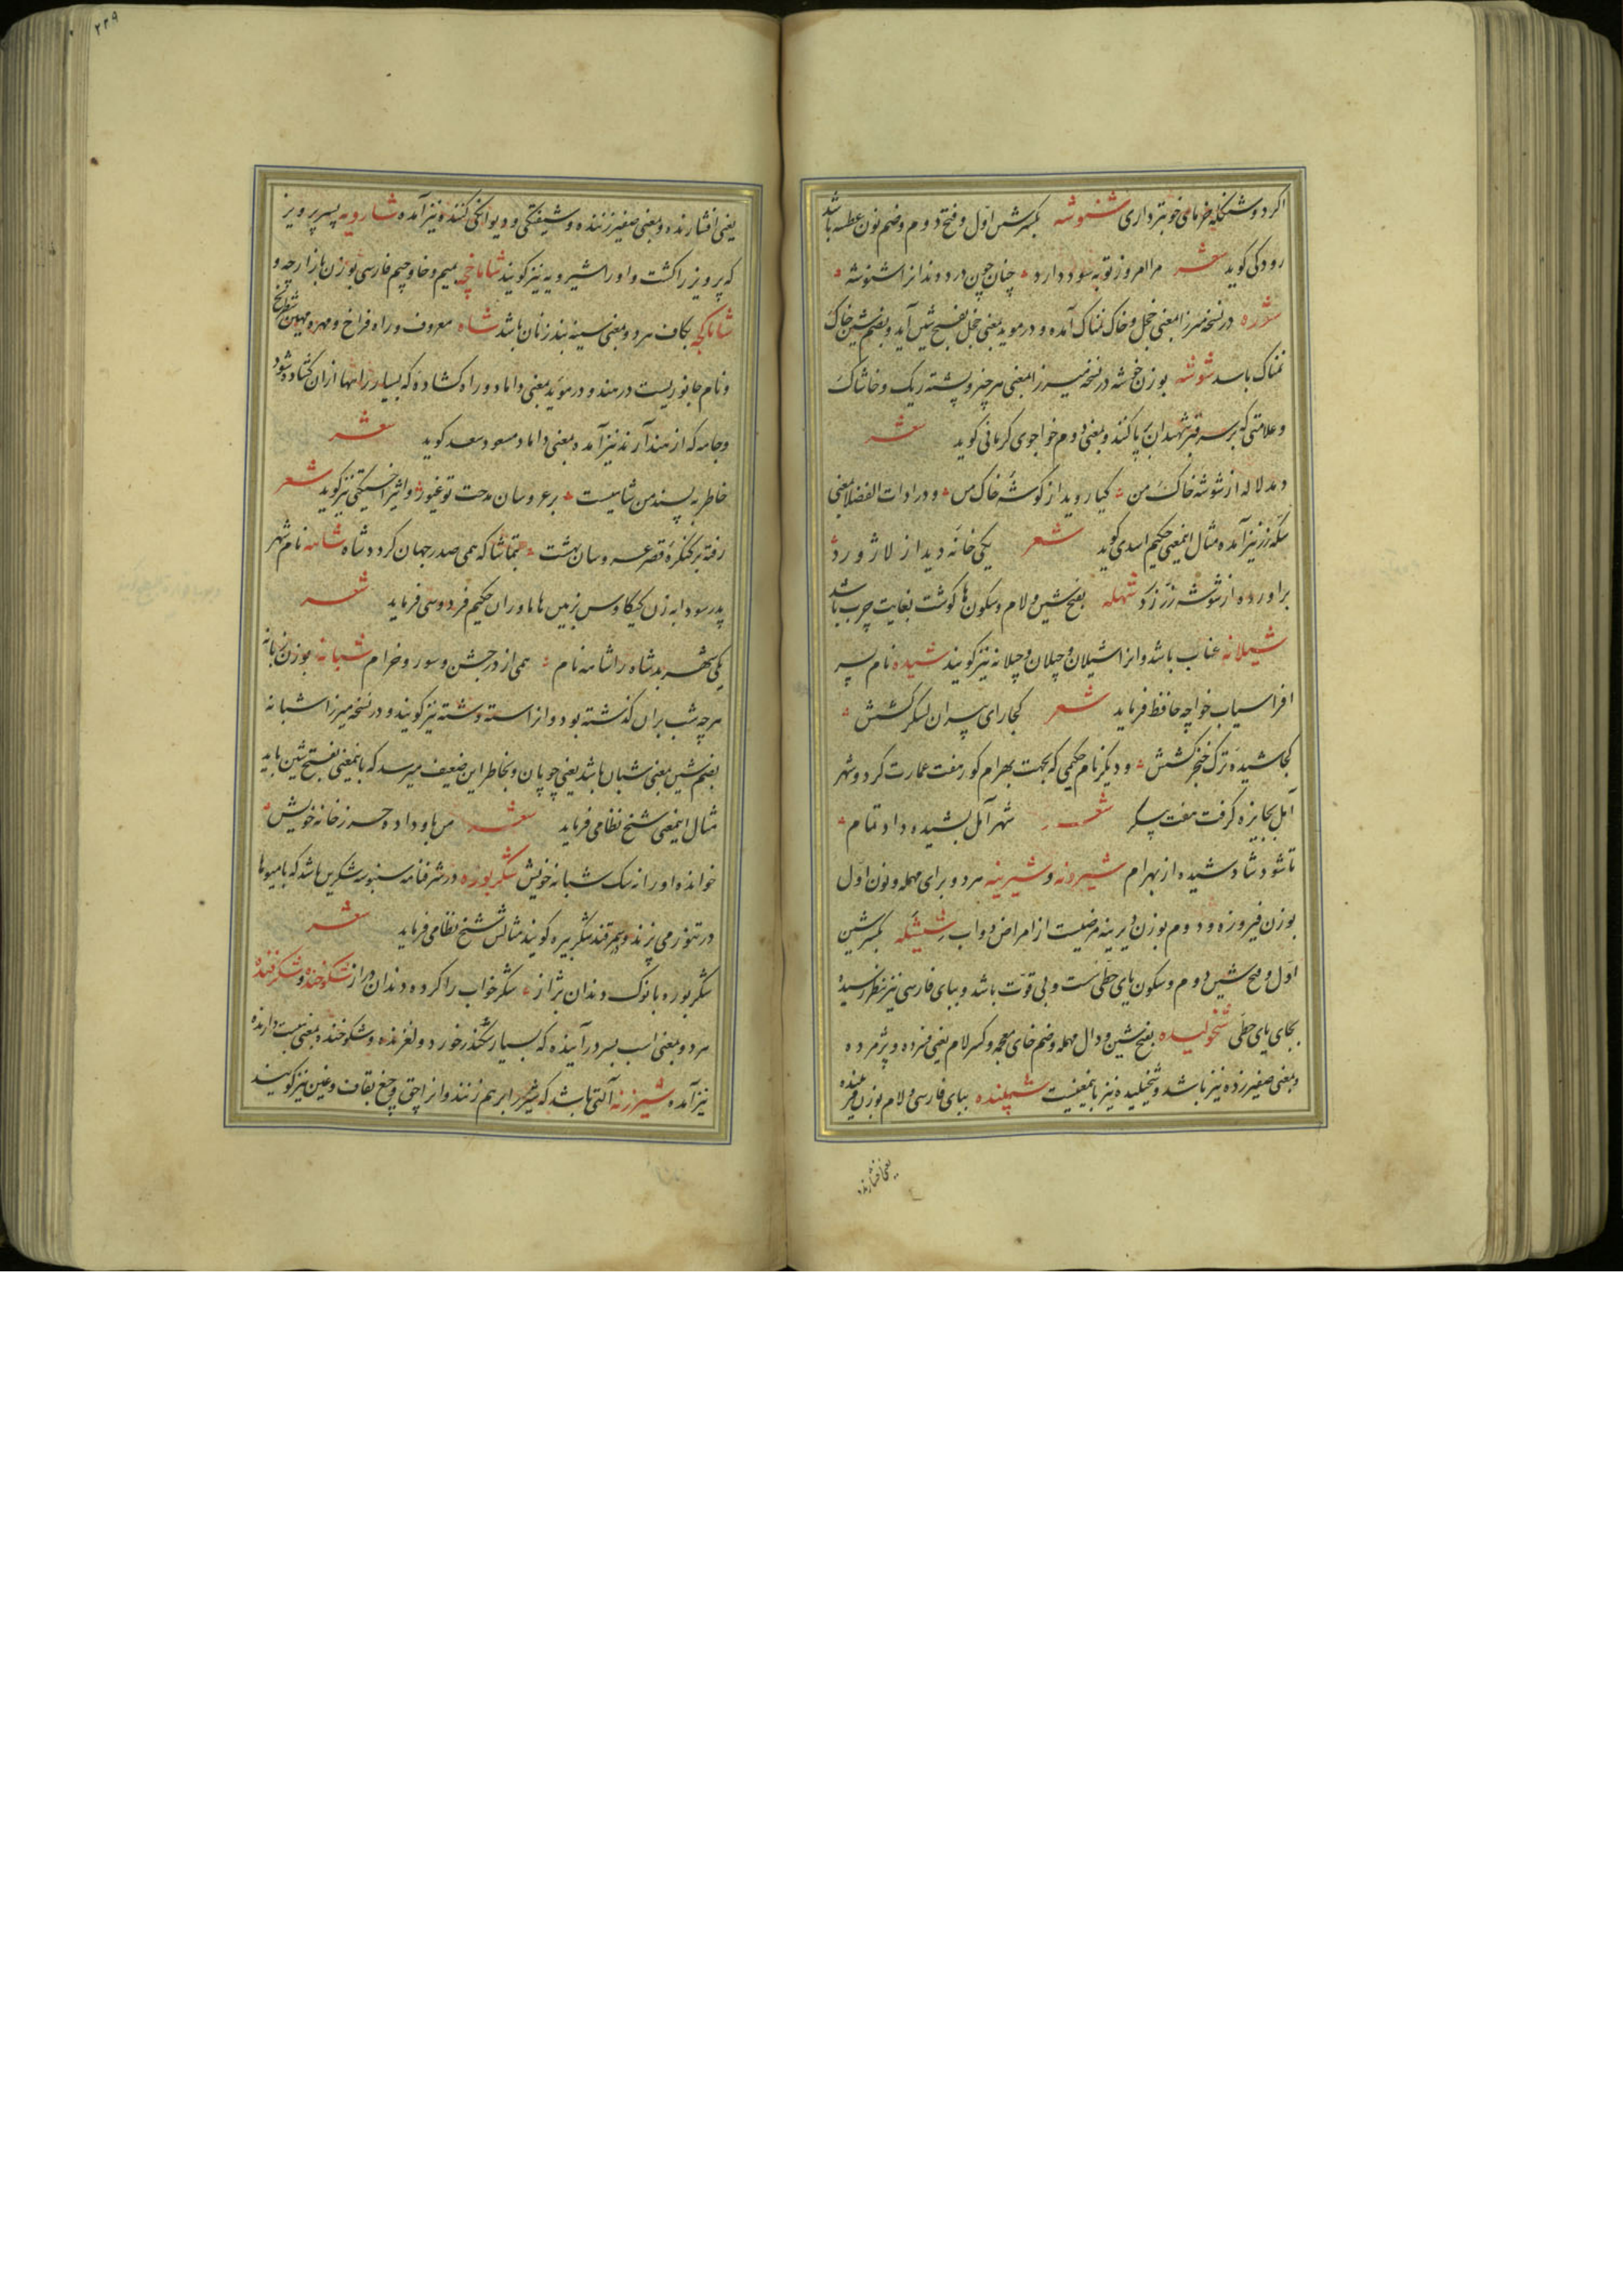 اکر دو شنکله خرمامی خوبتر داری شنوشه بکسر شین اول و فتح دوم و ضم نون عطسه باشد
رودکی کوید شعر مرا امروز توبه سود دارد چنان چون دردمندانرا شنوشه
شوره در نسخه میرزا بمعنی خجل و خاک نمناک آمده و در موید بمعنی خجل بفتح شین آید و بضم شین خاک
نمناک باسد شوشه بوزن خوشه در نسخه میرزا بمعنی هر چیز و پشته ریک و خاشاک
و علامتی که بر سر قبر شهیدان بپا کنند و بمعنی دوم خواجوی کرمانی کوید شعر
دمد لاله از شوشه خاک من کیا روید از کوشه خاک من و در ادات الفضلا بمعنی
سکه زر نیز آمده مثال اینمعنی حکیم اسدی کوید شعر یکی خانه دید از لاژورد
براورده از شوشه زر زرد شهله بفتح شین و لام و سکون ها کوشت بغایت چرب باشد
شیلانه عناب باشد و انرا شیلان و چیلان و چیلانه نیز کویند شیده نام پسر
افراسیاب خواجه حافظ فرماید شعر کجا رای پیران لشکر کشش
کجا شیده ترک خنجر کشش و دیکر نام حکیمی که بجهت بهرام کور هفت عمارت کرد و شهر
آمل بجایزه کرفت هفت پیکر شعر شهر آمل بشیده داد تمام
تا شود شاد شیده از بهرام شیرونه و شیرینه هر دو برای مهمله و نون اول
بوزن فیروزه و دوم بوزن دیرینه مرضیست از امراض دواب شیشله بکسر شین
اول و فتح شین دوم و سکون یای حطی سست و بی قوت باشد و ببای فارسی نیز بنظر رسیده
بجای یای حطی شخولیده بفتح شین و دال مهمله و ضم خای معجمه و کسر لام یعنی فسرده و پژمرده
و بمعنی صفیر زده نیز باشد و شخیلیده نیز باینمعنیست شپلنده ببای فارسی و لام بوزن
یعنی افشارنده
۲۳۹
یعنی افشارنده و بمعنی صفیر زننده و شیفتکی و دیوانکی کننده نیز آمده شارویه پسر پرویز
که پرویز را کشت و او را شیرویه نیز کویند شاماخچه بمیم و خا و جیم فارسی بوزن بازارچه و
شاماکچه بکاف هر دو بمعنی سینه بند زنان باشد شاه معروف و راه فراخ و مهره مهین شطرنج
و نام جانوریست در هند و در موید بمعنی داماد و راه کشاده که بسیار راهها ازان کشاده شود
و جامه که از هند آرند نیز آمده بمعنی داماد مسعود سعد کوید شعر
خاطر به پسند من شاهیست بر عروسان مدحت تو غیور و اثیر اخسیکتی نیز کوید شعر
رفته بر کنکره قصر عروسان بهشت بتماشا که همی صدر جهان کردد شاه شاهه نام شهر
پدر سودابه زن کیکاوس بزمین هاماوران حکیم فردوسی فرماید شعر
یکی شهر بد شاه را شاهه نام همی از در جشن و سور و خرام شبانه بوزن زبانه
هر چه شب بران کذشته بود و انرا سته و شته نیز کویند و در نسخه میرزا شبانه
بضم شین بمعنی شبان باشد یعنی چوپان و بخاطر این ضعیف میرسد که باینمعنی بفتح شین باید
مثال اینمعنی شیخ نظامی فرماید شعر من باو داده حرز خانه خویش
خوانده او را نه سک شبانه خویش شکر بوره در شرفنامه سنبوسه شکرین باشد که بامیوها
در تنور می پزند و بسمرقند شکر بیره کویند مثالش شیخ نظامی فرماید شعر
شکر بوره با نوک دندان براز شکر خواب را کرده دندان دراز شکوخنده و شکرفنده
هر دو بمعنی اسب بسر درآینده که بسیار سکندر خورد و لغزنده و شکوخنده بمعنی هیبت دارنده
نیز آمده شیرزنه آلتی باشد که شیر را برهم زنند و انرا چق و چغ بقاف و غین نیز کویند